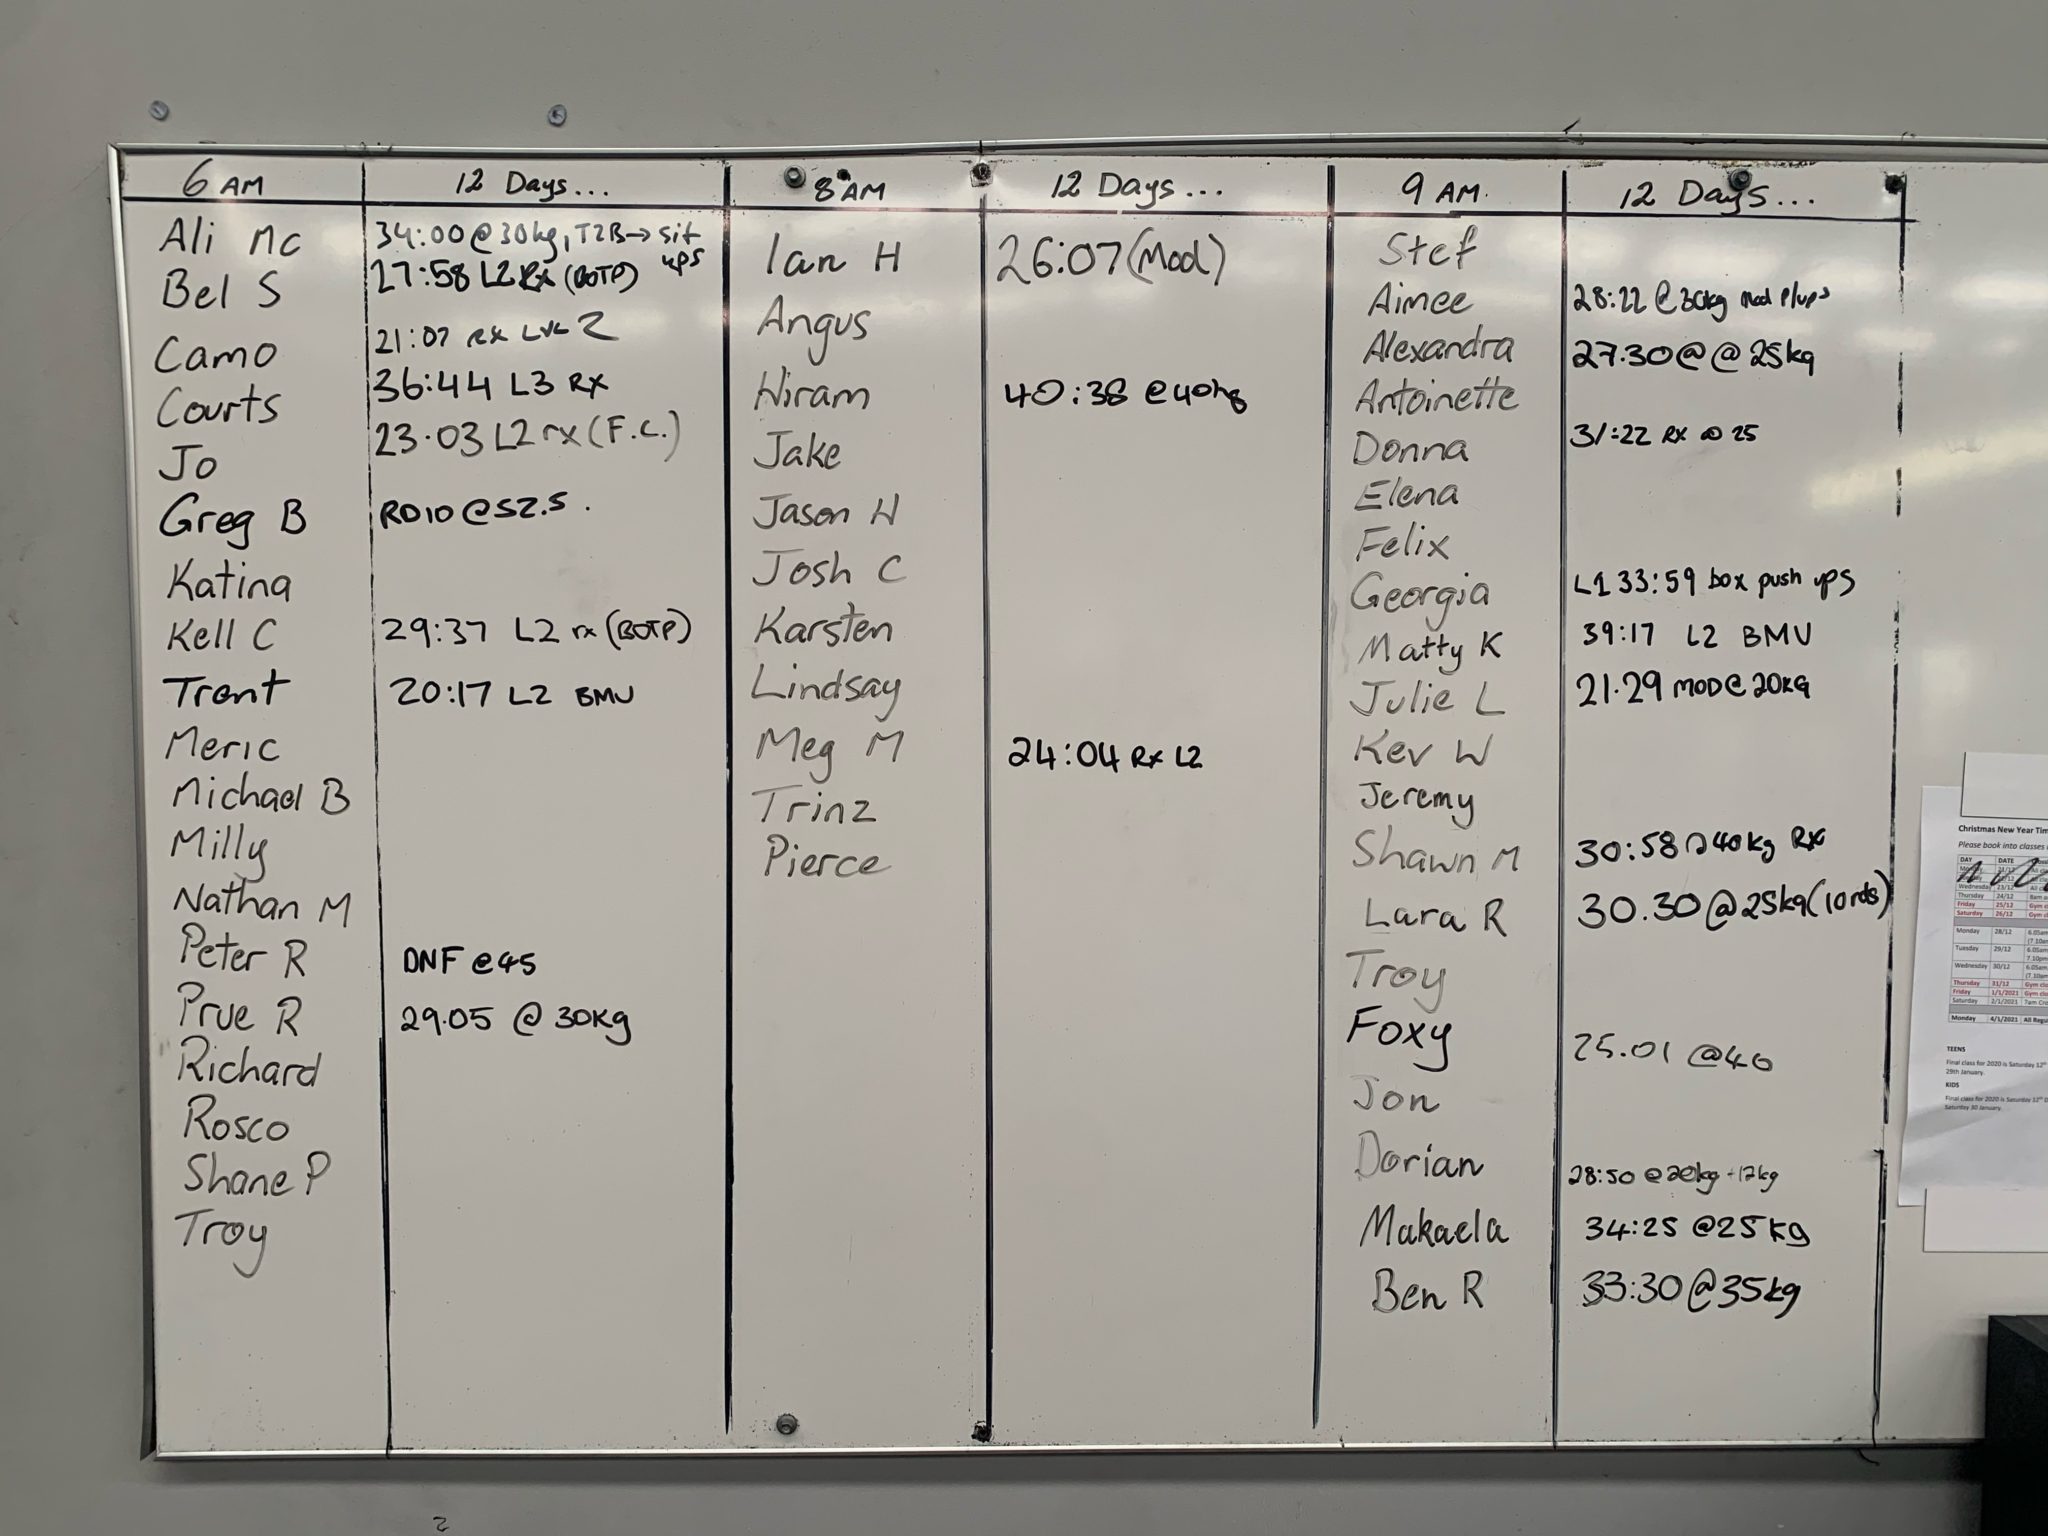 6 AM 12 Days...
Ali Mc 34:00 @ 30kg, T2B → sit ups
Bel S 27:58 L2 Rx (BOTP)
Camo 21:07 Rx LVL 2
Courts 36:44 L3 RX
Jo 23.03 L2 rx (F.C.)
Greg B RD10 @ 52.5.
Katina
Kell C 29:37 L2 rx (BOTP)
Trent 20:17 L2 BMU
Meric
Michael B
Milly
Nathan M
Peter R DNF @ 45
Prue R 29.05 @ 30Kg
Richard
Rosco
Shane P
Troy
8 AM 12 Days...
Ian H 26:07 (Mod)
Angus
Hiram 40:38 @ 40kg
Jake
Jason H
Josh C
Karsten
Lindsay
Meg M 24:04 Rx L2
Trinz
Pierce
9 AM. 12 Days...
Stef
Aimee 28:22 @ 30kg Mod P/ups
Alexandra 27.30 @ @ 25kg
Antoinette
Donna 31:22 RX @ 25
Elena
Felix
Georgia L1 33:59 box push ups
Matty K 39:17 L2 BMU
Julie L 21.29 MOD @ 20KG
Kev W
Jeremy
Shawn M 30:58 @ 40kg RX
Lara R 30.30 @ 25kg (10rds)
Troy
Foxy 25.01 @ 40
Jon
Dorian 28:50 @ 20kg 12kg
Makaela 34:25 @ 25kg
Ben R 33:30 @ 35kg
Christmas New Year Tim
Please book into classes
DAY DATE
Wednesday 23/12
Thursday 24/12
Friday 25/12
Saturday 26/12
Monday 28/12 6.05am
Tuesday 29/12 6.05am
Wednesday 30/12 6.05am
Thursday 31/12 Gym clo
Friday 1/1/2021 Gym clo
Saturday 2/1/2021 7am Cro
Monday 4/1/2021 All Regu
TEENS
Final class for 2020 is Saturday 12th
29th January.
KIDS
Final class for 2020 is Saturday 12th D
Saturday 30 January.
2